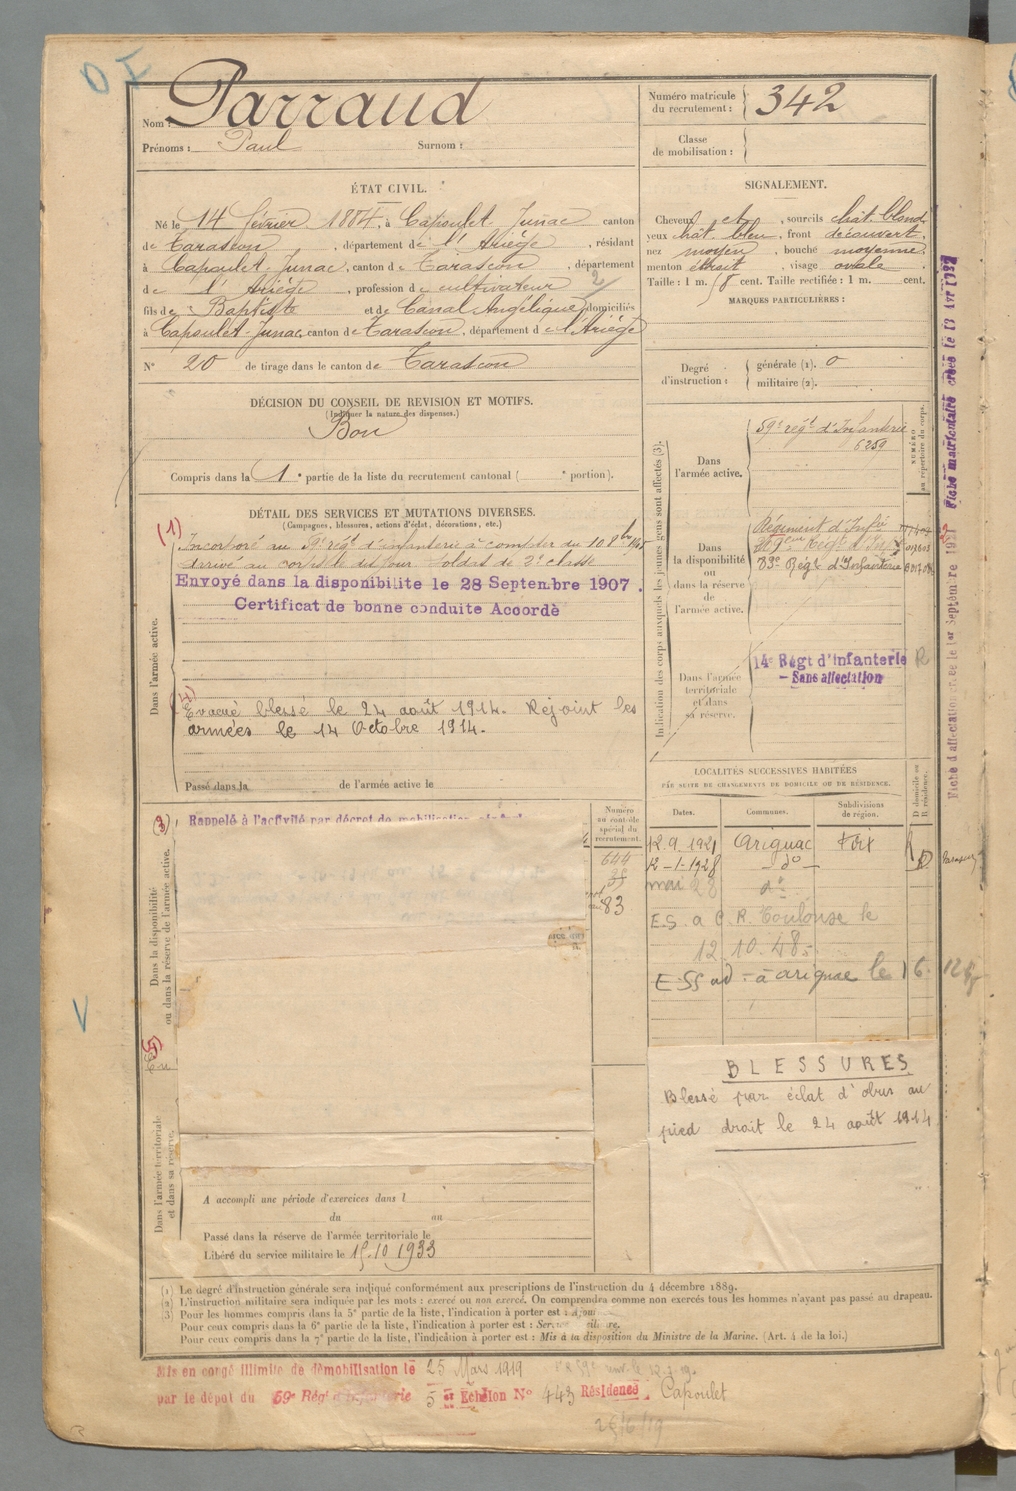 Nom : Parraud
Prénoms : Paul Surnom :
Numéro matricule du recrutement : 342
Classe de mobilisation :
ÉTAT CIVIL.
Né le 14 février 1884, à Capoulet-Junac canton
de Tarascon, département de l'Ariège, résidant
à Capoulet-Junac, canton de Tarascon, département
de l'Ariège, profession de cultivateur
fils de Baptiste et de Canal Angélique, domiciliés
à Capoulet-Junac, canton de Tarascon, département de l'Ariège
N° 20 de tirage dans le canton de Tarascon
SIGNALEMENT.
Cheveux et, sourcils chât. blond,
yeux chât. bleu, front découvert,
nez moyen, bouche moyenne,
menton étroit, visage ovale.
Taille : 1 m. 58 cent. Taille rectifiée : 1 m. cent.
MARQUES PARTICULIÈRES :
Degré d'instruction : générale (1). 0
militaire (2).
DÉCISION DU CONSEIL DE REVISION ET MOTIFS.
(Indiquer la nature des dispenses.)
Bon
Compris dans la 1e partie de la liste du recrutement cantonal ( e portion).
DÉTAIL DES SERVICES ET MUTATIONS DIVERSES.
(Campagnes, blessures, actions d'éclat, décorations, etc.)
Dans l'armée active.
(1)
Incorporé au 59e régt d'infanterie à compter du 10 8bre 1905
arrivé au corps le dit jour soldat de 2e classe
Envoyé dans la disponibilité le 28 Septembre 1907.
Certificat de bonne conduite Accordé
(4)
Evacué blessé le 24 août 1914. Rejoint les
armées le 14 Octobre 1914.
Passé dans la de l'armée active le
Indication des corps auxquels les jeunes gens sont affectés (3).
NUMÉRO au répertoire du corps.
Dans l'armée active.
59e régt d'Infanterie
6259
Dans la disponibilité ou dans la réserve de l'armée active.
Régiment d'Infie
83e Régt d'Infanterie
Dans l'armée territoriale et dans sa réserve.
14e Régt d'Infanterie R
- Sans affectation
Fiche d'affectation créée le 1er Septembre 1927 Fiche matriculaire créée le 13 Avr 1932
LOCALITÉS SUCCESSIVES HABITÉES
PAR SUITE DE CHANGEMENTS DE DOMICILE OU DE RÉSIDENCE.
Dates. Communes. Subdivisions de région. D domicile ou R résidence.
12.9.1921 Arignac Foix R
12-1-1928 - d° - D
mai 28 d°
E.S. a C.R. Toulouse le
12.10.48
E SS ad - à Arignac le 16.
Dans la disponibilité ou dans la réserve de l'armée active.
(3)
Rappelé à l'activité par décret de mobilisation
Numéro au contrôle spécial du recrutement.
644
83
(5)
BLESSURES
Blessé par éclat d'obus au
pied droit le 24 août 1914
Dans l'armée territoriale et dans sa réserve.
A accompli une période d'exercices dans l
du au
Passé dans la réserve de l'armée territoriale le
Libéré du service militaire le 15.10 1933
(1) Le degré d'instruction générale sera indiqué conformément aux prescriptions de l'instruction du 4 décembre 1889.
(2) L'instruction militaire sera indiquée par les mots : exercé ou non exercé. On comprendra comme non exercés tous les hommes n'ayant pas passé au drapeau.
(3) Pour les hommes compris dans la 5e partie de la liste, l'indication à porter est :
Pour ceux compris dans la 6e partie de la liste, l'indication à porter est :
Pour ceux compris dans la 7e partie de la liste, l'indication à porter est : Mis à la disposition du Ministre de la Marine. (Art. 4 de la loi.)
Mis en congé illimité de démobilisation le 25 Mars 1919
par le dépôt du 59e Régt d'Infanterie 5 er Échelon N° 443 Résidence Capoulet
26/6/19